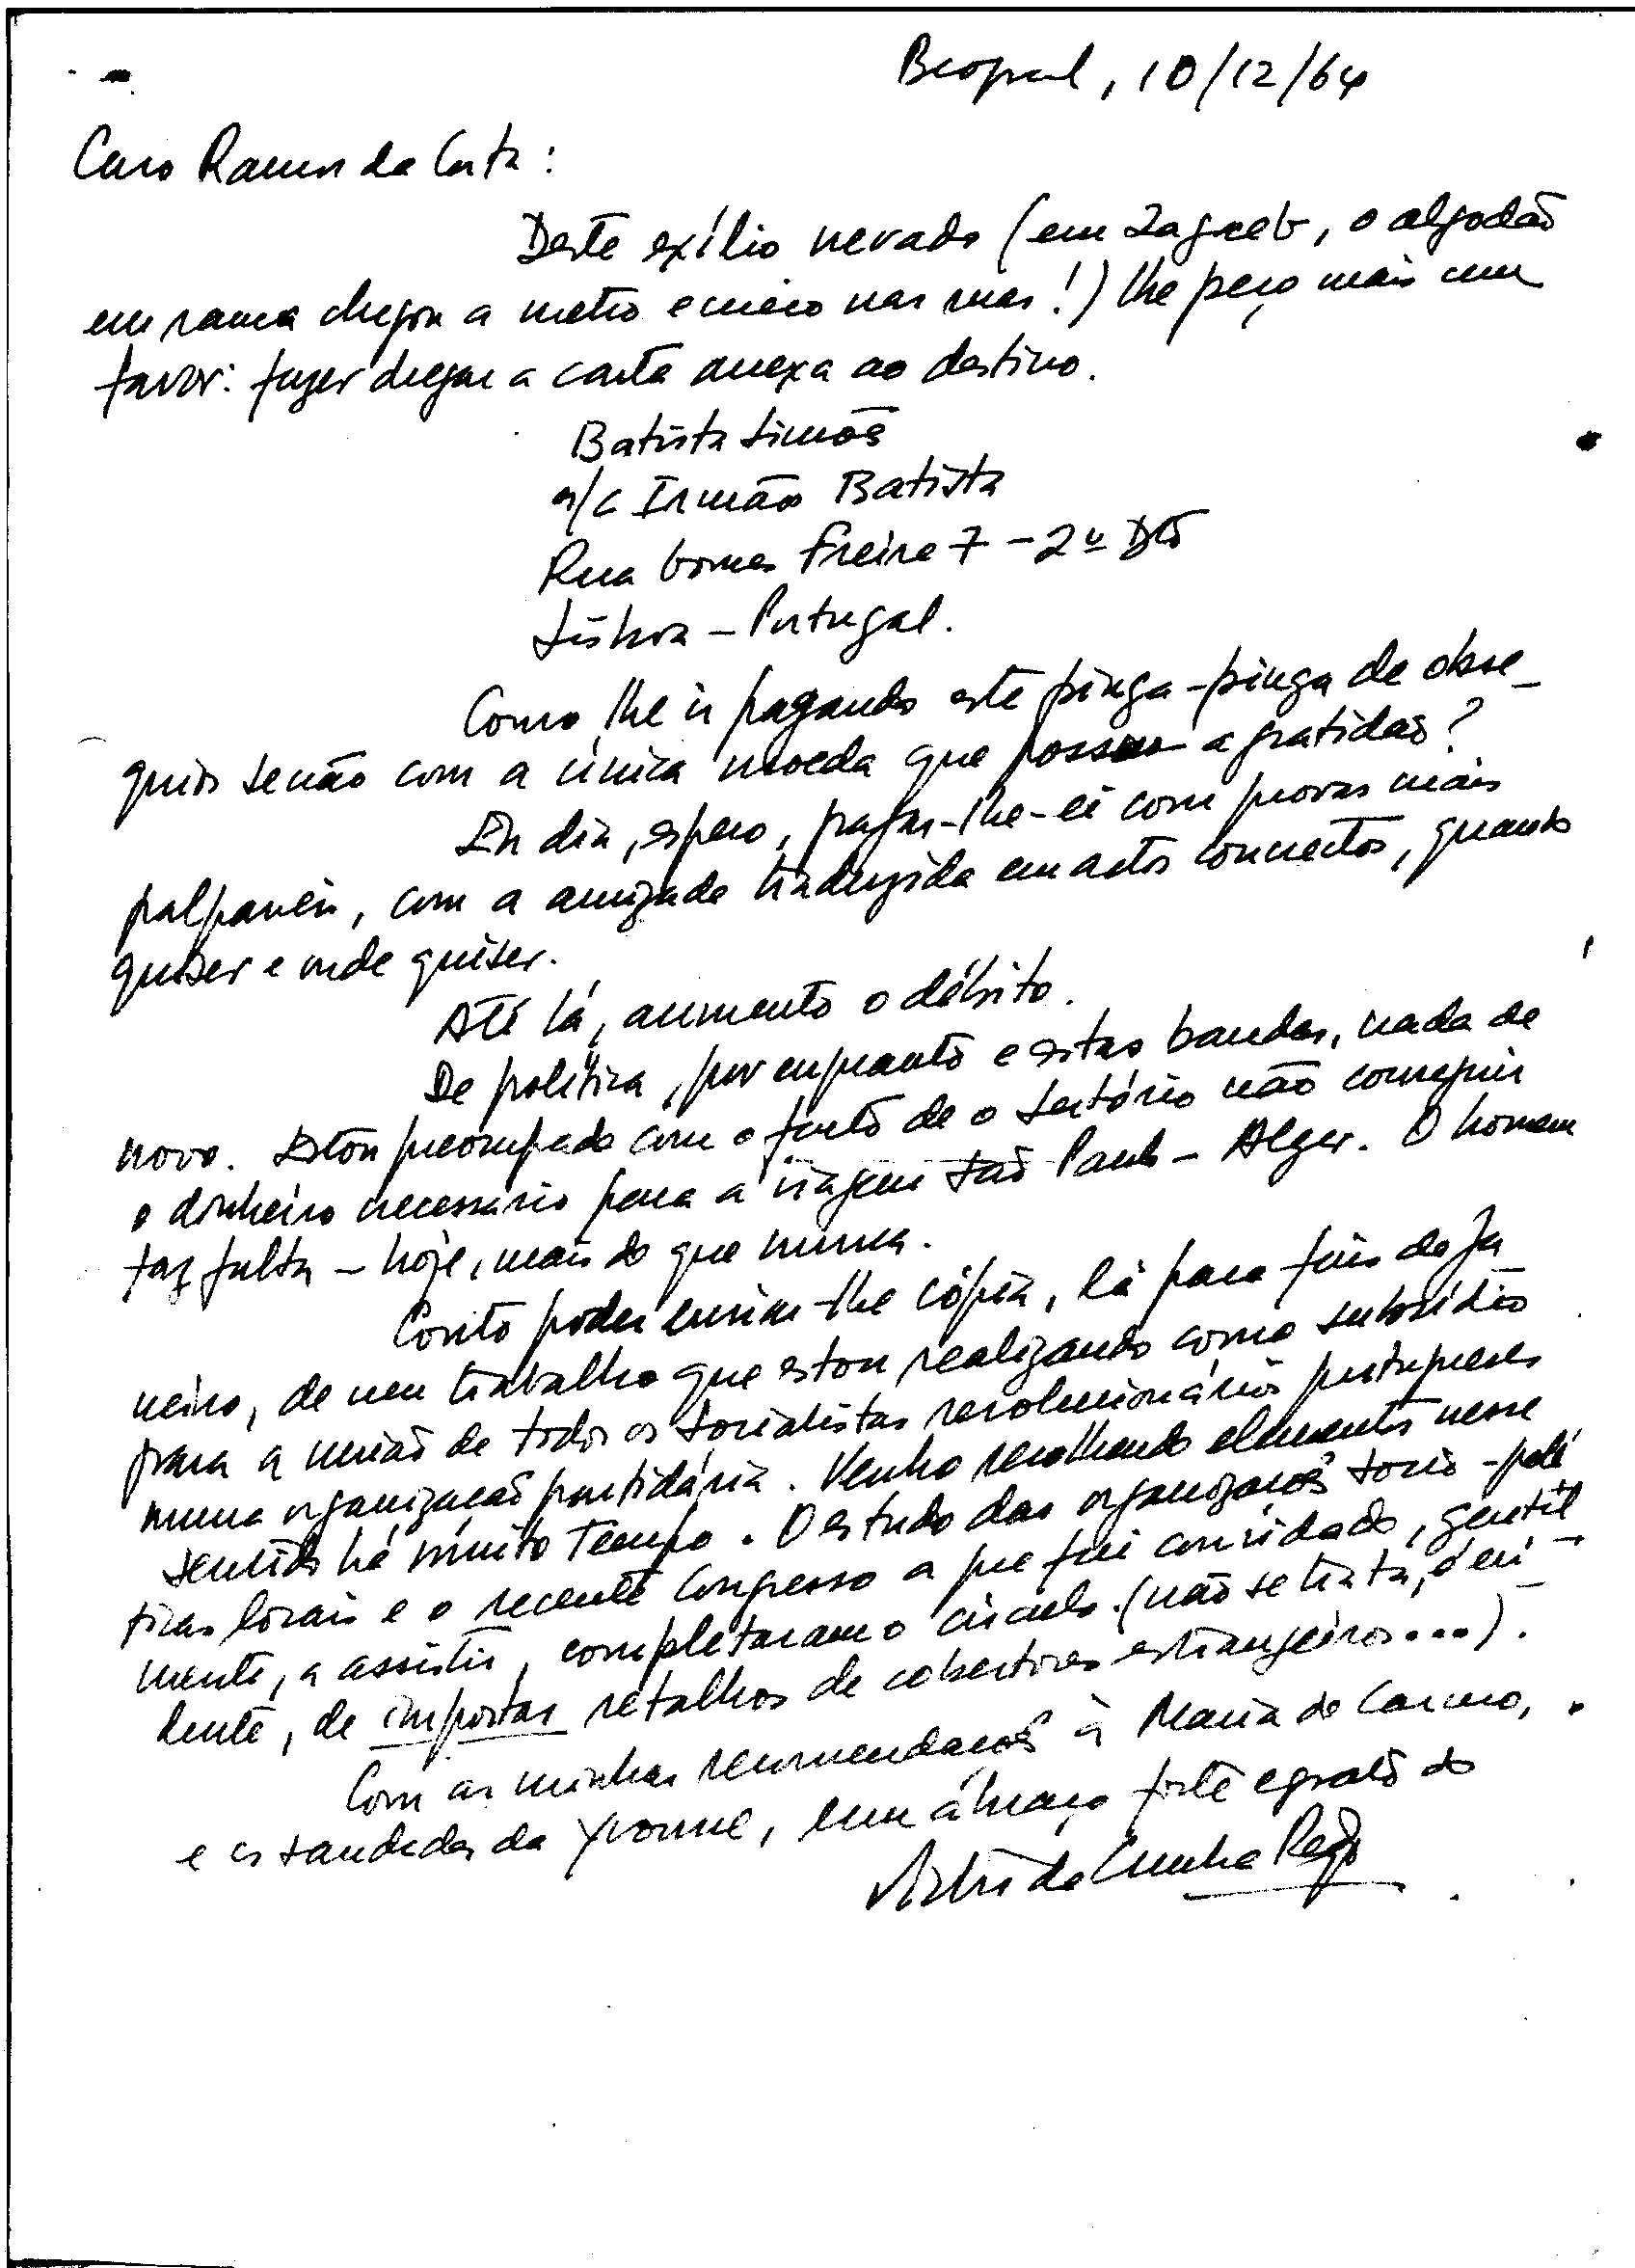 Beograd, 10/12/64
Caro Ramos da Costa:
Deste exílio nevado (em Zagreb, o algodão
em rama chegou a metro e meio nas ruas!) lhe peço mais um
favor: fazer chegar a carta anexa ao destino.
Batista Simões
a/c Irmão Batista
Rua Gomes Freire 7 - 2º Dtº
Lisboa - Portugal.
Como lhe ir pagando este pinga-pinga de obse-
quios senão com a única moeda que a gratidão?
Um dia, espero, pagar-lhe-ei com provas mais
palpaveis, com a amizade traduzida em actos concretos, quando
quiser e onde quiser.
Até lá, aumento o débito.
De política, por enquanto e estas bandas, nada de
novo. Estou preocupado com o facto de o Sertório não conseguir
o dinheiro necessário para a viagem São Paulo - Alger. O homem
faz falta - hoje, mais do que nunca.
Conto poder enviar-lhe cópia, lá para fins de Ja-
neiro, de um trabalho que estou realizando como subsídio
para a união de todos os socialistas revolucionários portugueses
numa organização partidária. Venho recolhendo elementos nesse
sentido há muito tempo. O estudo das organizações socio-polí
ticas locais e o recente Congresso a que fui convidado, gentil-
mente, a assistir, completaram o circulo. (não se trata, é evi-
dente, de importar retalhos de cobertores estrangeiros...).
Com as minhas recomendações à Maria do Carmo,
e as saudades da Yvonne, um abraço forte e grato do
Victor da Cunha Rego